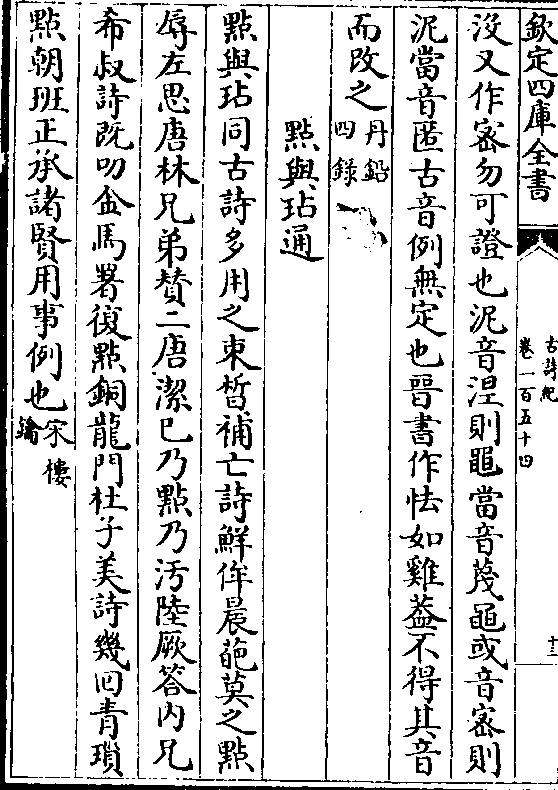 欽定四庫全書
古詩紀
卷一百五十四
十三
没又作密勿可證也泥音涅則黽當音蔑黽或音密則
泥當音匿古音例無定也晉書作怯如雞葢不得其音
而改之丹鉛
四録
點與玷通
點與玷同古詩多用之束晳補亡詩鮮侔晨葩莫之點
辱左思唐林兄弟賛二唐潔已乃點乃汚陸厥答内兄
希叔詩既叨金馬署復點銅龍門杜子美詩幾回青瑣
點朝班正承諸賢用事例也宋樓
鑰